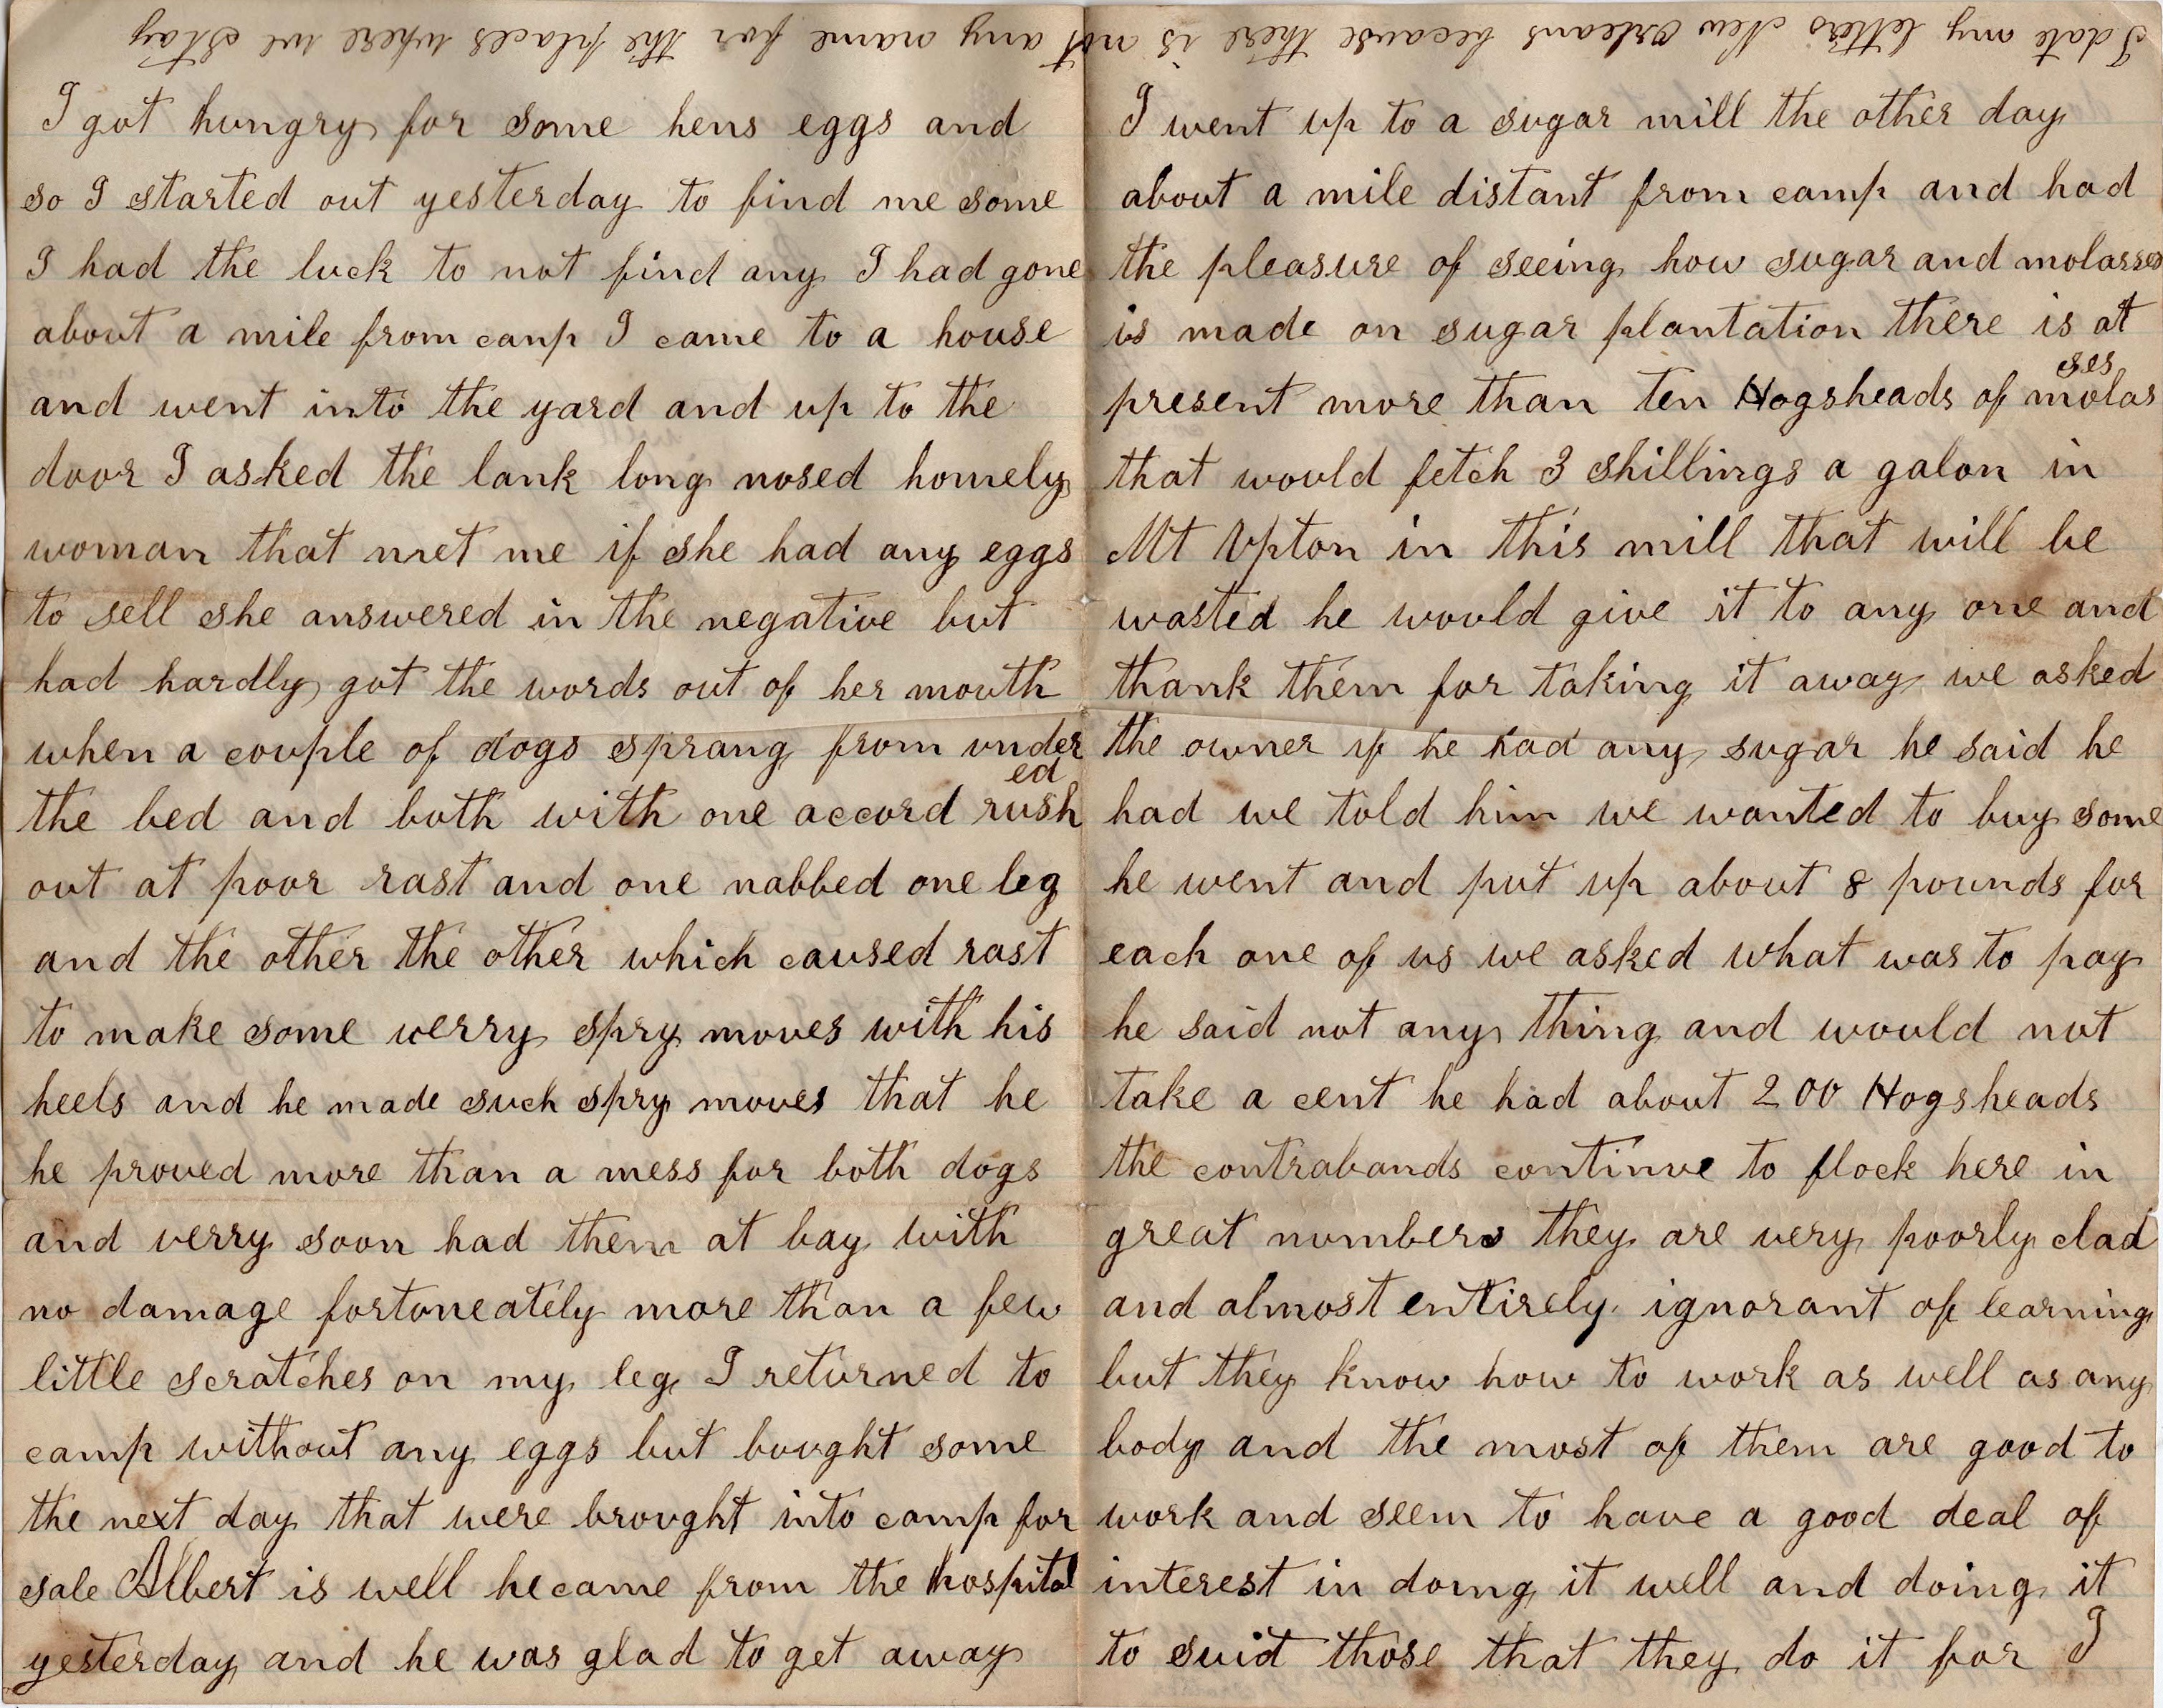 I date my letters New Orleans because there is not any name for the places where we stay
I got hungry for some hens eggs and
so I started out yesterday to find me some
I had the luck to not find any I had gone
about a mile from canp I came to a house
and went into the yard and up to the
door I asked the lank long nosed homely
woman that met me if she had any eggs
to sell she answered in the negative but
had hardly got the words out of her mouth
when a couple of dogs sprang from under
the bed and both with one accord rushed
out at poor rast and one nabbed one leg
and the other the other which caused rast
to make some verry spry moves with his
heels and he made such spry moves that he
he proved more than a mess for both dogs
and verry soon had them at bay with
no damage fortoneately more than a few
little scratches on my leg I returned to
camp without any eggs but bought some
the next day that were brought into camp for
sale Albert is well he came from the hospital
yesterday and he was glad to get away
I went up to a sugar mill the other day
about a mile distant from camp and had
the pleasure of seeing how sugar and molasses
is made on sugar plantation there is at
present more than ten Hogsheads of molasses
that would fetch 3 shillings a galon in
Mt Upton in this mill that will be
wasted he would give it to any one and
thank them for taking it away we asked
the owner if he had any sugar he said he
had we told him we wanted to buy some
he went and put up about 8 pounds for
each one of us we asked what was to pay
he said not any thing and would not
take a cent he had about 200 Hogsheads
the contrabands continue to flock here in
great numbers they are very poorly clad
and almost entirely ignorant of learning
but they know how to work as well as any
body and the most of them are good to
work and seem to have a good deal of
interest in doing it well and doing it
to suit those that they do it for I